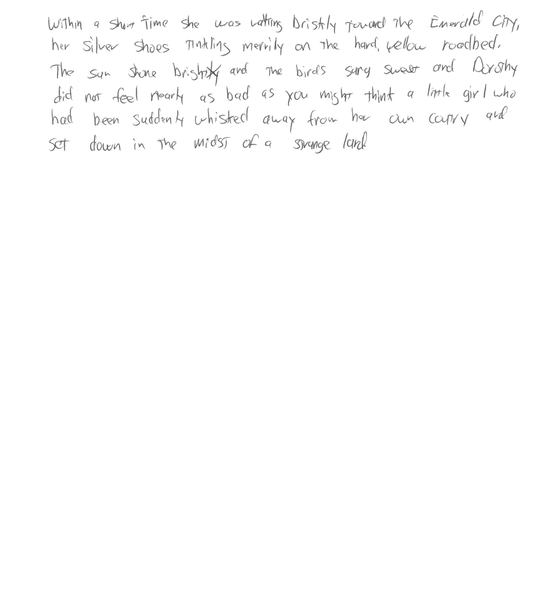 Within a short time she was walking briskly toward the Emerald City,
her Silver Shoes tinkling merrily on the hard, yellow roadbed.
The sun shone brightly and the birds sang sweet and Dorothy
did not feel nearly as bad as you might think a little girl who
had been suddenly whisked away from her own country and
set down in the midst of a strange land